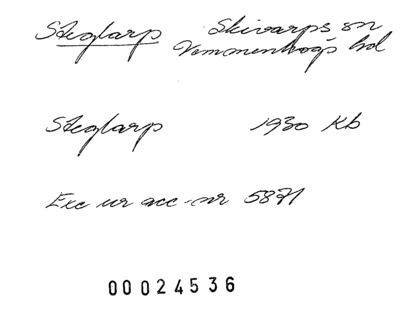 Steglarp Skivarps sn
Vemmenhögs hd
Steglarp 1930 Kb
Exc ur acc-nr 5871
00024536